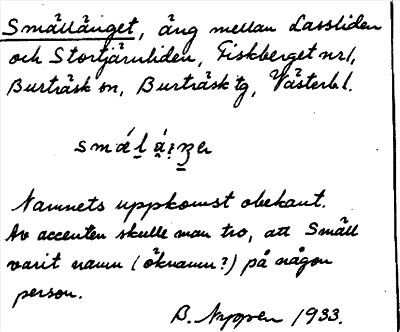 Smällänget, äng mellan Lassliden
och Stortjärnliden, Fiskberget nr1,
Burträsk sn, Burträsk tg, Västerb l.
smǽl̠ǻ̱:ŋer
Namnets uppkomst obekant.
Av accenten skulle man tro, att Smäll
varit namn (öknamn?) på någon
person.
B. Nyppen 1933.